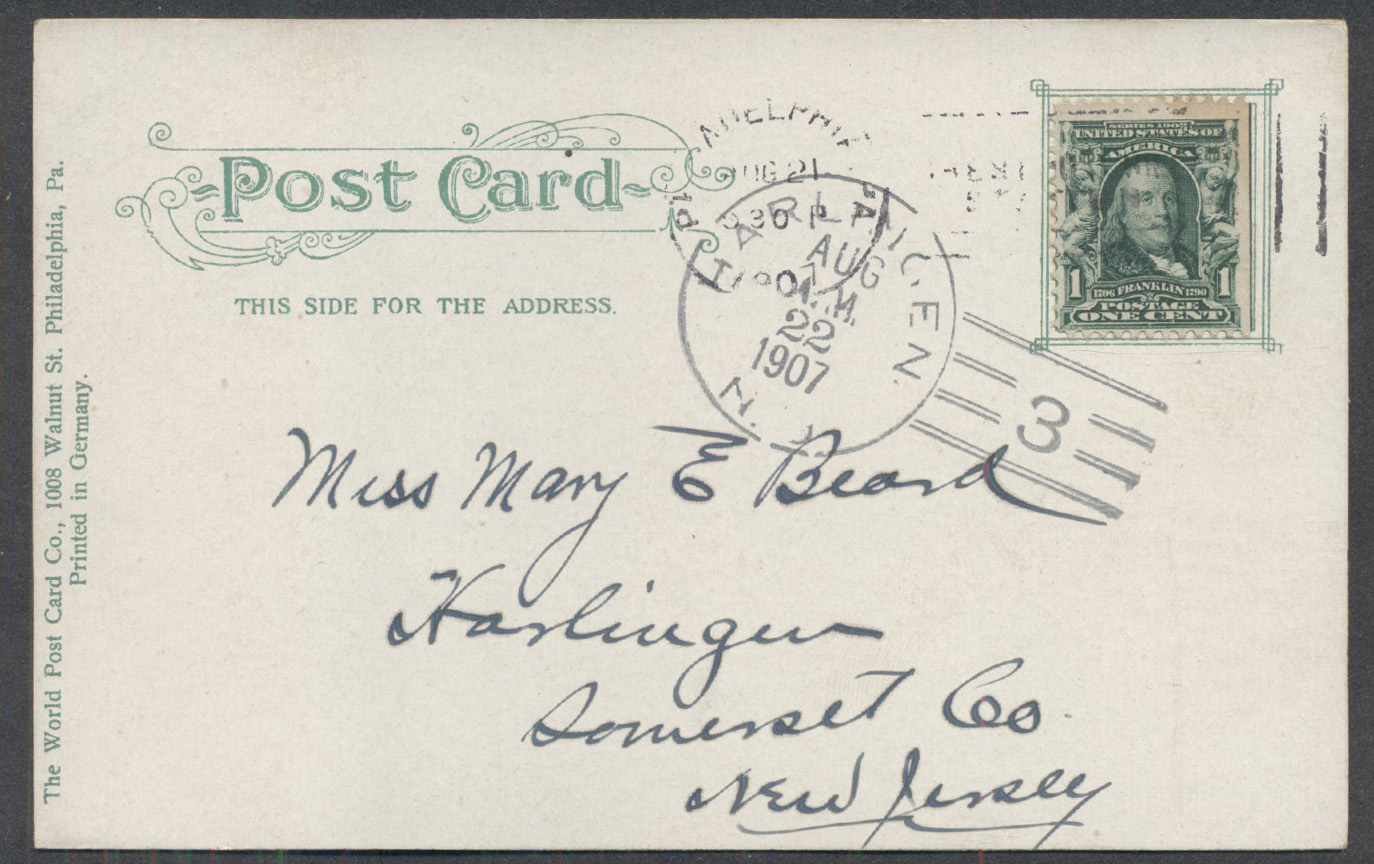 The World Post Card Co., 1008 Walnut St. Philadelphia, Pa.
Printed in Germany.
Post Card
THIS SIDE FOR THE ADDRESS.
PHILADELPHIA PA
AUG 21
30 P
1907
HARLINGEN
N. J.
AUG
22
1907
3
SERIES 1902
UNITED STATES OF
AMERICA
1 1
1706 FRANKLIN 1790
POSTAGE
ONE CENT
Miss Mary E Beard
Harlingen
Somerset Co
New Jersey